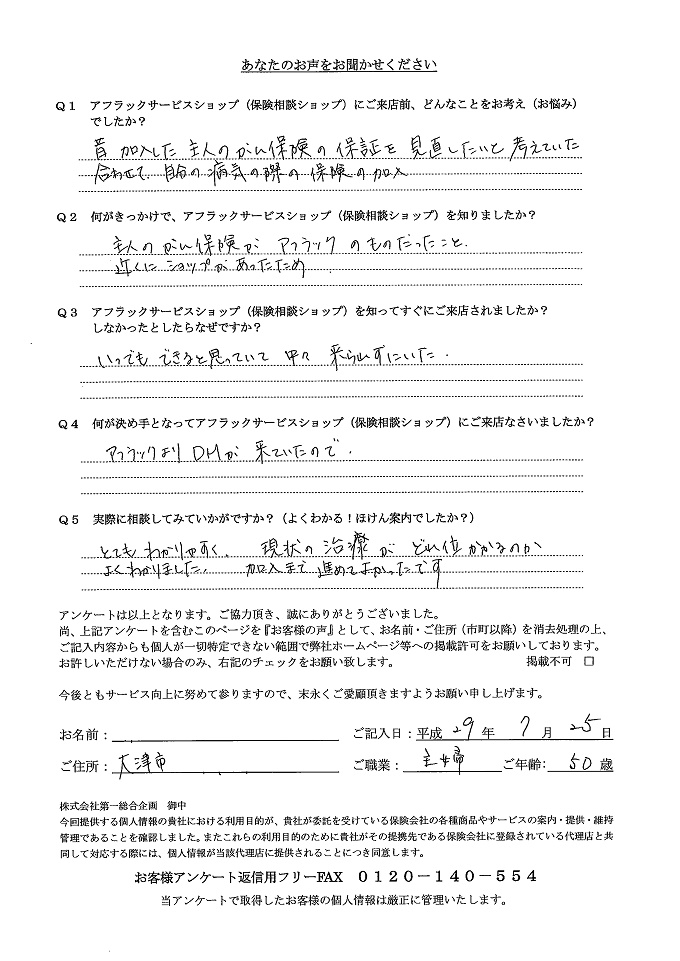 あなたのお声をお聞かせください
Q1 アフラックサービスショップ（保険相談ショップ）にご来店前、どんなことをお考え（お悩み）
でしたか？
昔 加入した 主人のがん保険の保証を 見直したいと 考えていた
合わせて、自分の病気の際の保険の加入
Q2 何がきっかけで、アフラックサービスショップ（保険相談ショップ）を知りましたか？
主人のがん保険が アフラックのものだったこと、
近くに ショップが あったため
Q3 アフラックサービスショップ（保険相談ショップ）を知ってすぐにご来店されましたか？
しなかったとしたらなぜですか？
いつでも できると思っていて 中々 来られずにいた．
Q4 何が決め手となってアフラックサービスショップ（保険相談ショップ）にご来店なさいましたか？
アフラックより DMが 来ていたので．
Q5 実際に相談してみていかがですか？（よくわかる！ほけん案内でしたか？）
とても わかりやすく、 現状の治療が どれ位かかるのか
よくわかりました． 加入まで 進めてよかったです
アンケートは以上となります。ご協力頂き、誠にありがとうございました。
尚、上記アンケートを含むこのページを『お客様の声』として、お名前・ご住所（市町以降）を消去処理の上、
ご記入内容からも個人が一切特定できない範囲で弊社ホームページ等への掲載許可をお願いしております。
お許しいただけない場合のみ、右記のチェックをお願い致します。 掲載不可 □
今後ともサービス向上に努めて参りますので、末永くご愛顧頂きますようお願い申し上げます。
お名前： ご記入日：平成 29 年 7 月 25 日
ご住所： 大津市 ご職業： 主婦 ご年齢： 50 歳
株式会社第一総合企画 御中
今回提供する個人情報の貴社における利用目的が、貴社が委託を受けている保険会社の各種商品やサービスの案内・提供・維持
管理であることを確認しました。またこれらの利用目的のために貴社がその提携先である保険会社に登録されている代理店と共
同して対応する際には、個人情報が当該代理店に提供されることにつき同意します。
お客様アンケート返信用フリーFAX 0120－140－554
当アンケートで取得したお客様の個人情報は厳正に管理いたします。